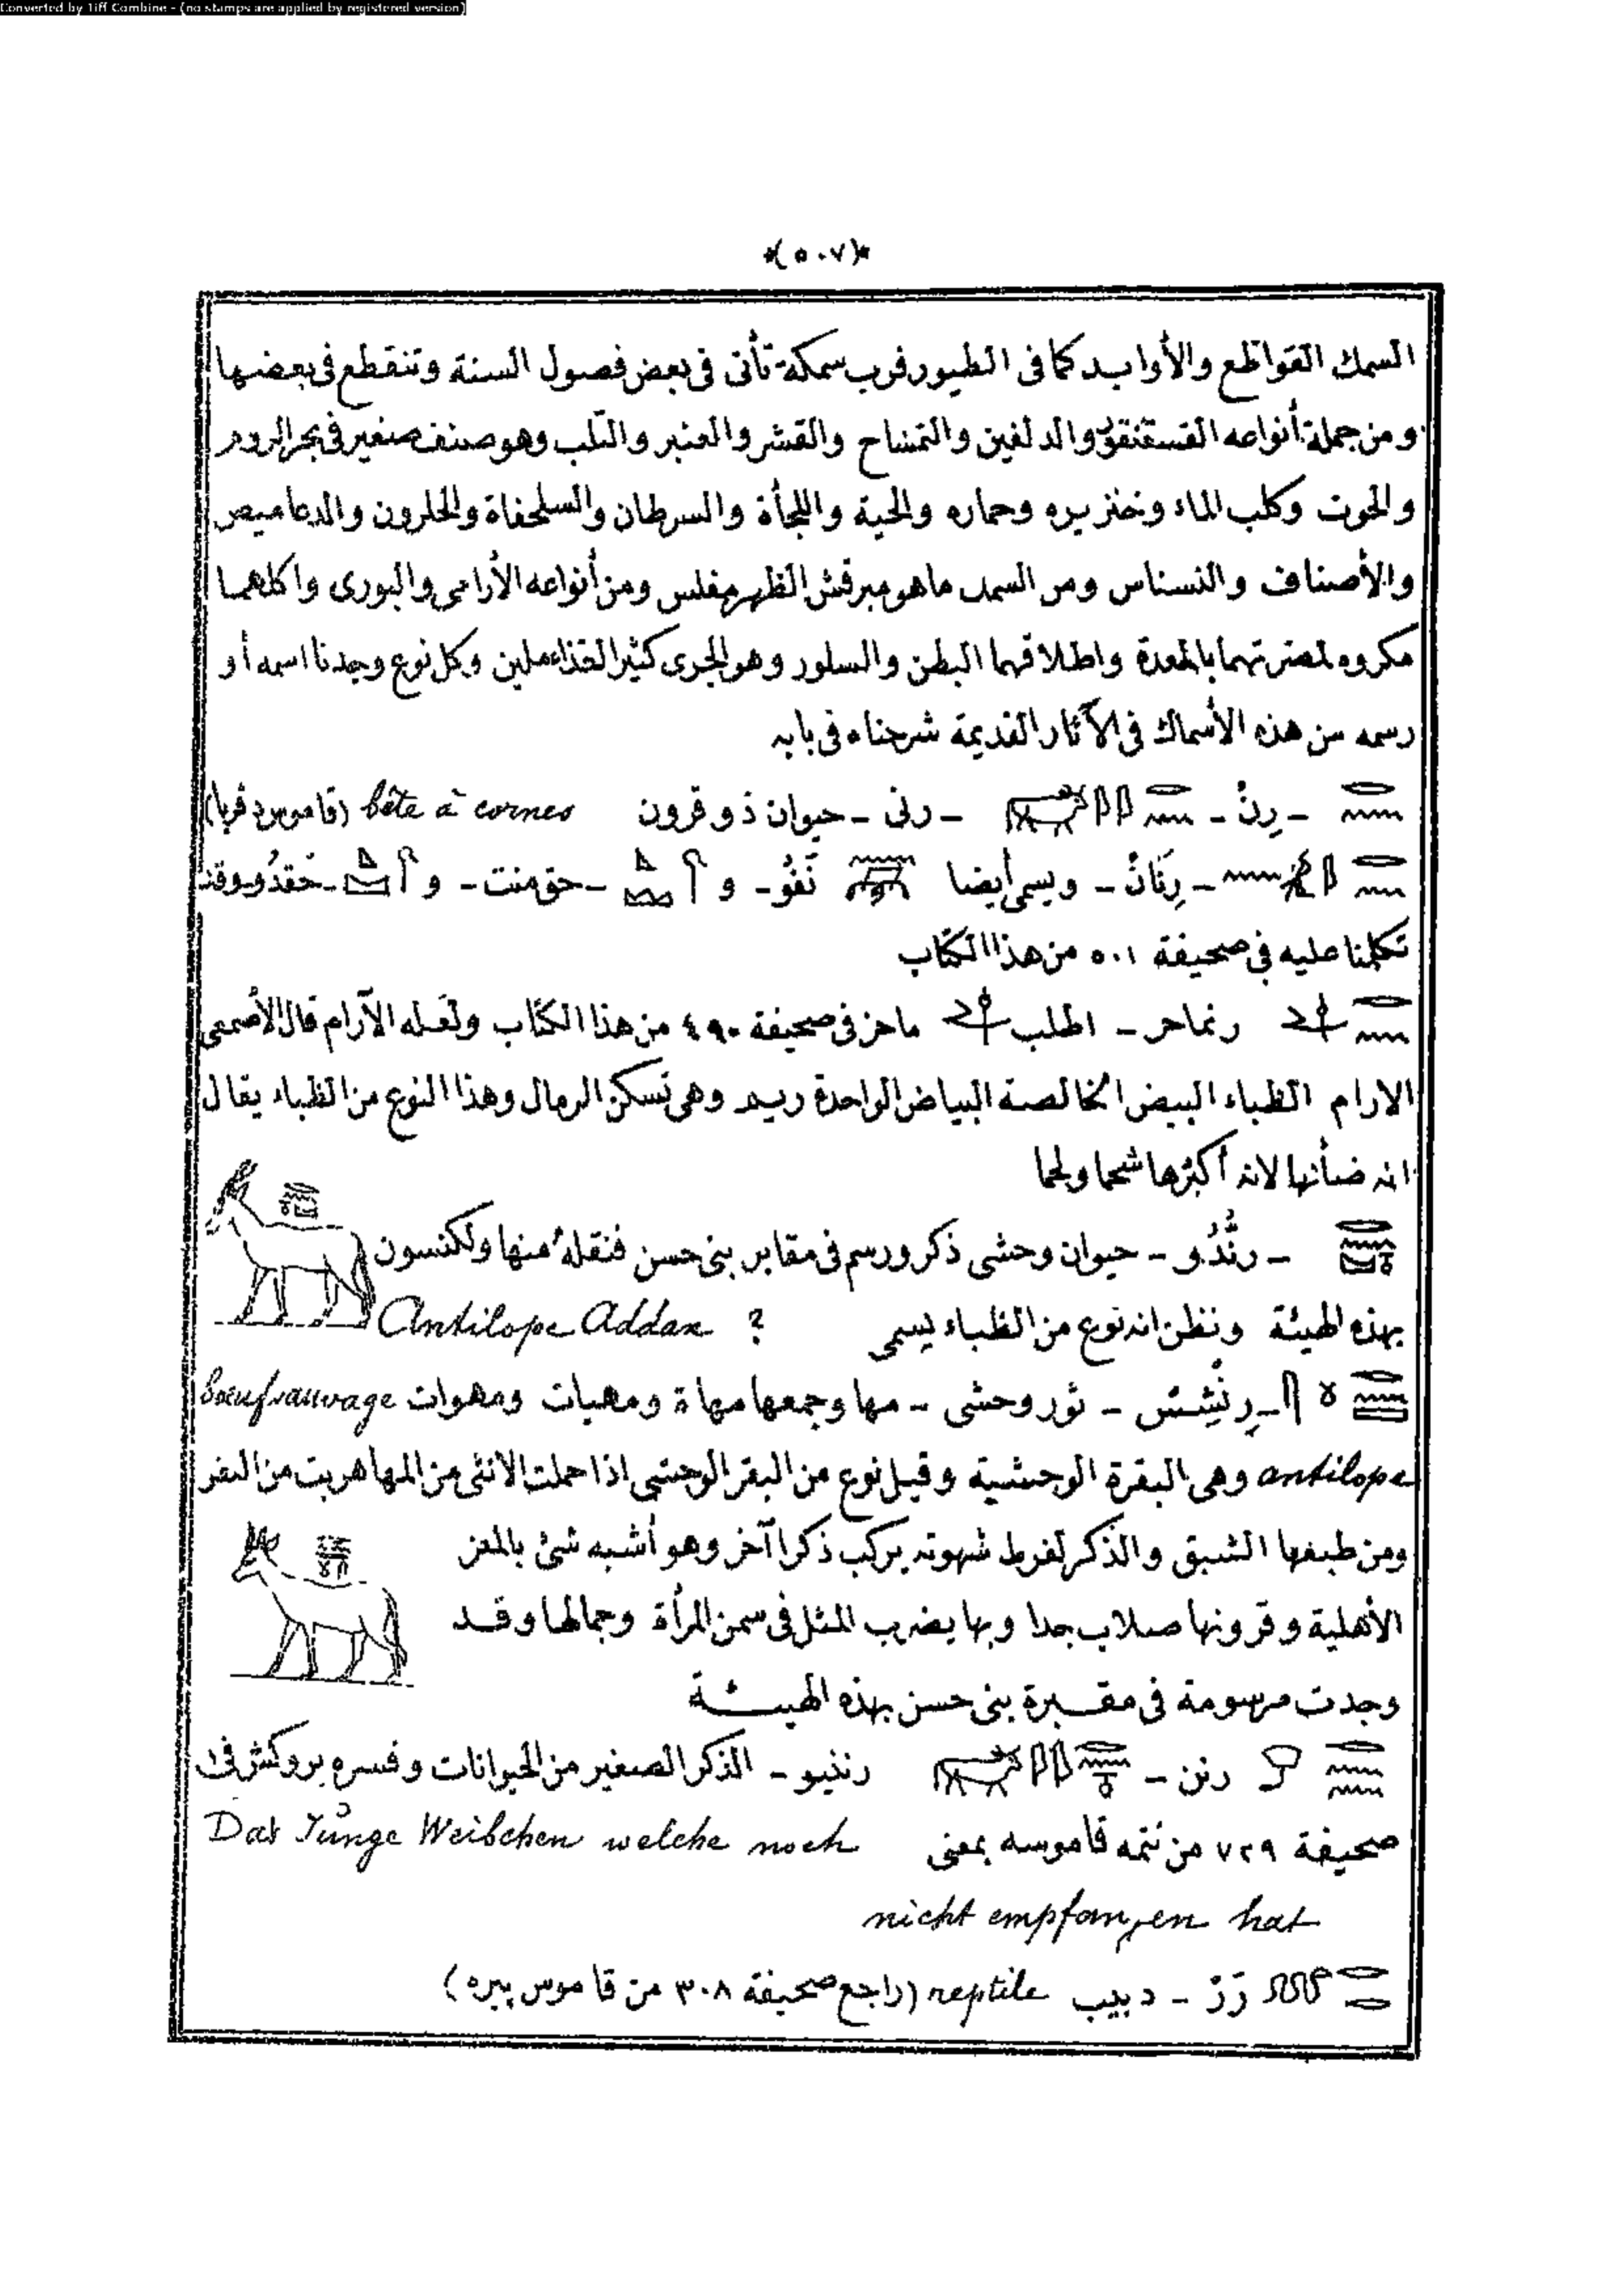 Converted by Tiff Combine - (no stamps are applied by registered version)
*(٥٠٧)*
السمك القواطع والأوابد كما فى الطيور فرب سمكة تأتى فى بعض فصول السنة وتنقطع فى بعضها
ومن جملة أنواعه القسقنقور والدلفين والتمساح والقشر والعنبر والتلب وهو صنف صغير فى بحر الروم
والحوت وكلب الماء وخنزيره وحماره والحية واللجأة والسرطان والسلحفاة والحلزون والدعاميص
والأصناف والنسناس ومن السمك ما هو مبرقش الظهر مفلس ومن أنواعه الأرامى والبورى واكلهما
مكروه لمضرتهما بالمعدة واطلاقهما البطن والسلور وهو الجرى كثير الغذاء ملين وكل نوع وجدنا اسمه أو
رسمه من هذه الأسماك فى الآثار القديمة شرحناه فى بابه
- رِنْ - - رنى - حيوان ذو قرون bête à cornes (قاموس
- رِنَانْ - ويسمى أيضا نَفُو - و - حق منت - و - وقد
تكلمنا عليه فى صحيفة ٥٠١ من هذا الكتاب
رنماحز - اطلب ماحز فى صحيفة ٤٩٠ من هذا الكتاب ولعله الآرام قال الأصمعى
الارام الظباء البيض الخالصة البياض الواحدة ريم وهى تسكن الرمال وهذا النوع من الظباء يقال
انه ضأنها لانه أكثرها شحما ولحما
- رنْدُو - حيوان وحشى ذكر ورسم فى مقابر بنى حسن فنقله منها ولكنسون
بهذه الهيئة ونظن انه نوع من الظباء يسمى ? Antilope Addax
- ثور وحشى - مها وجمعها مهاة ومهيات ومهوات bœuf sauvage
antilope وهى البقرة الوحشية وقيل نوع من البقر الوحشى اذا حملت الانثى من المها هربت من البقر
ومن طبعها الشبق والذكر لفرط شهوته يركب ذكرا آخر وهو أشبه شئ بالمعز
الأهلية وقرونها صلاب جدا وبها يضرب المثل فى سمن المرأة وجمالها وقد
وجدت مرسومة فى مقبرة بنى حسن بهذه الهيئة
رنن - رننيو - الذكر الصغير من الحيوانات وفسره بروكش فى
صحيفة ٧٢٩ من تتمه قاموسه بمعنى Das Junge Weibchen welche noch
nicht empfangen hat
رَرْ - دبيب reptile (راجع صحيفة ٣٠٨ من قاموس پيره)